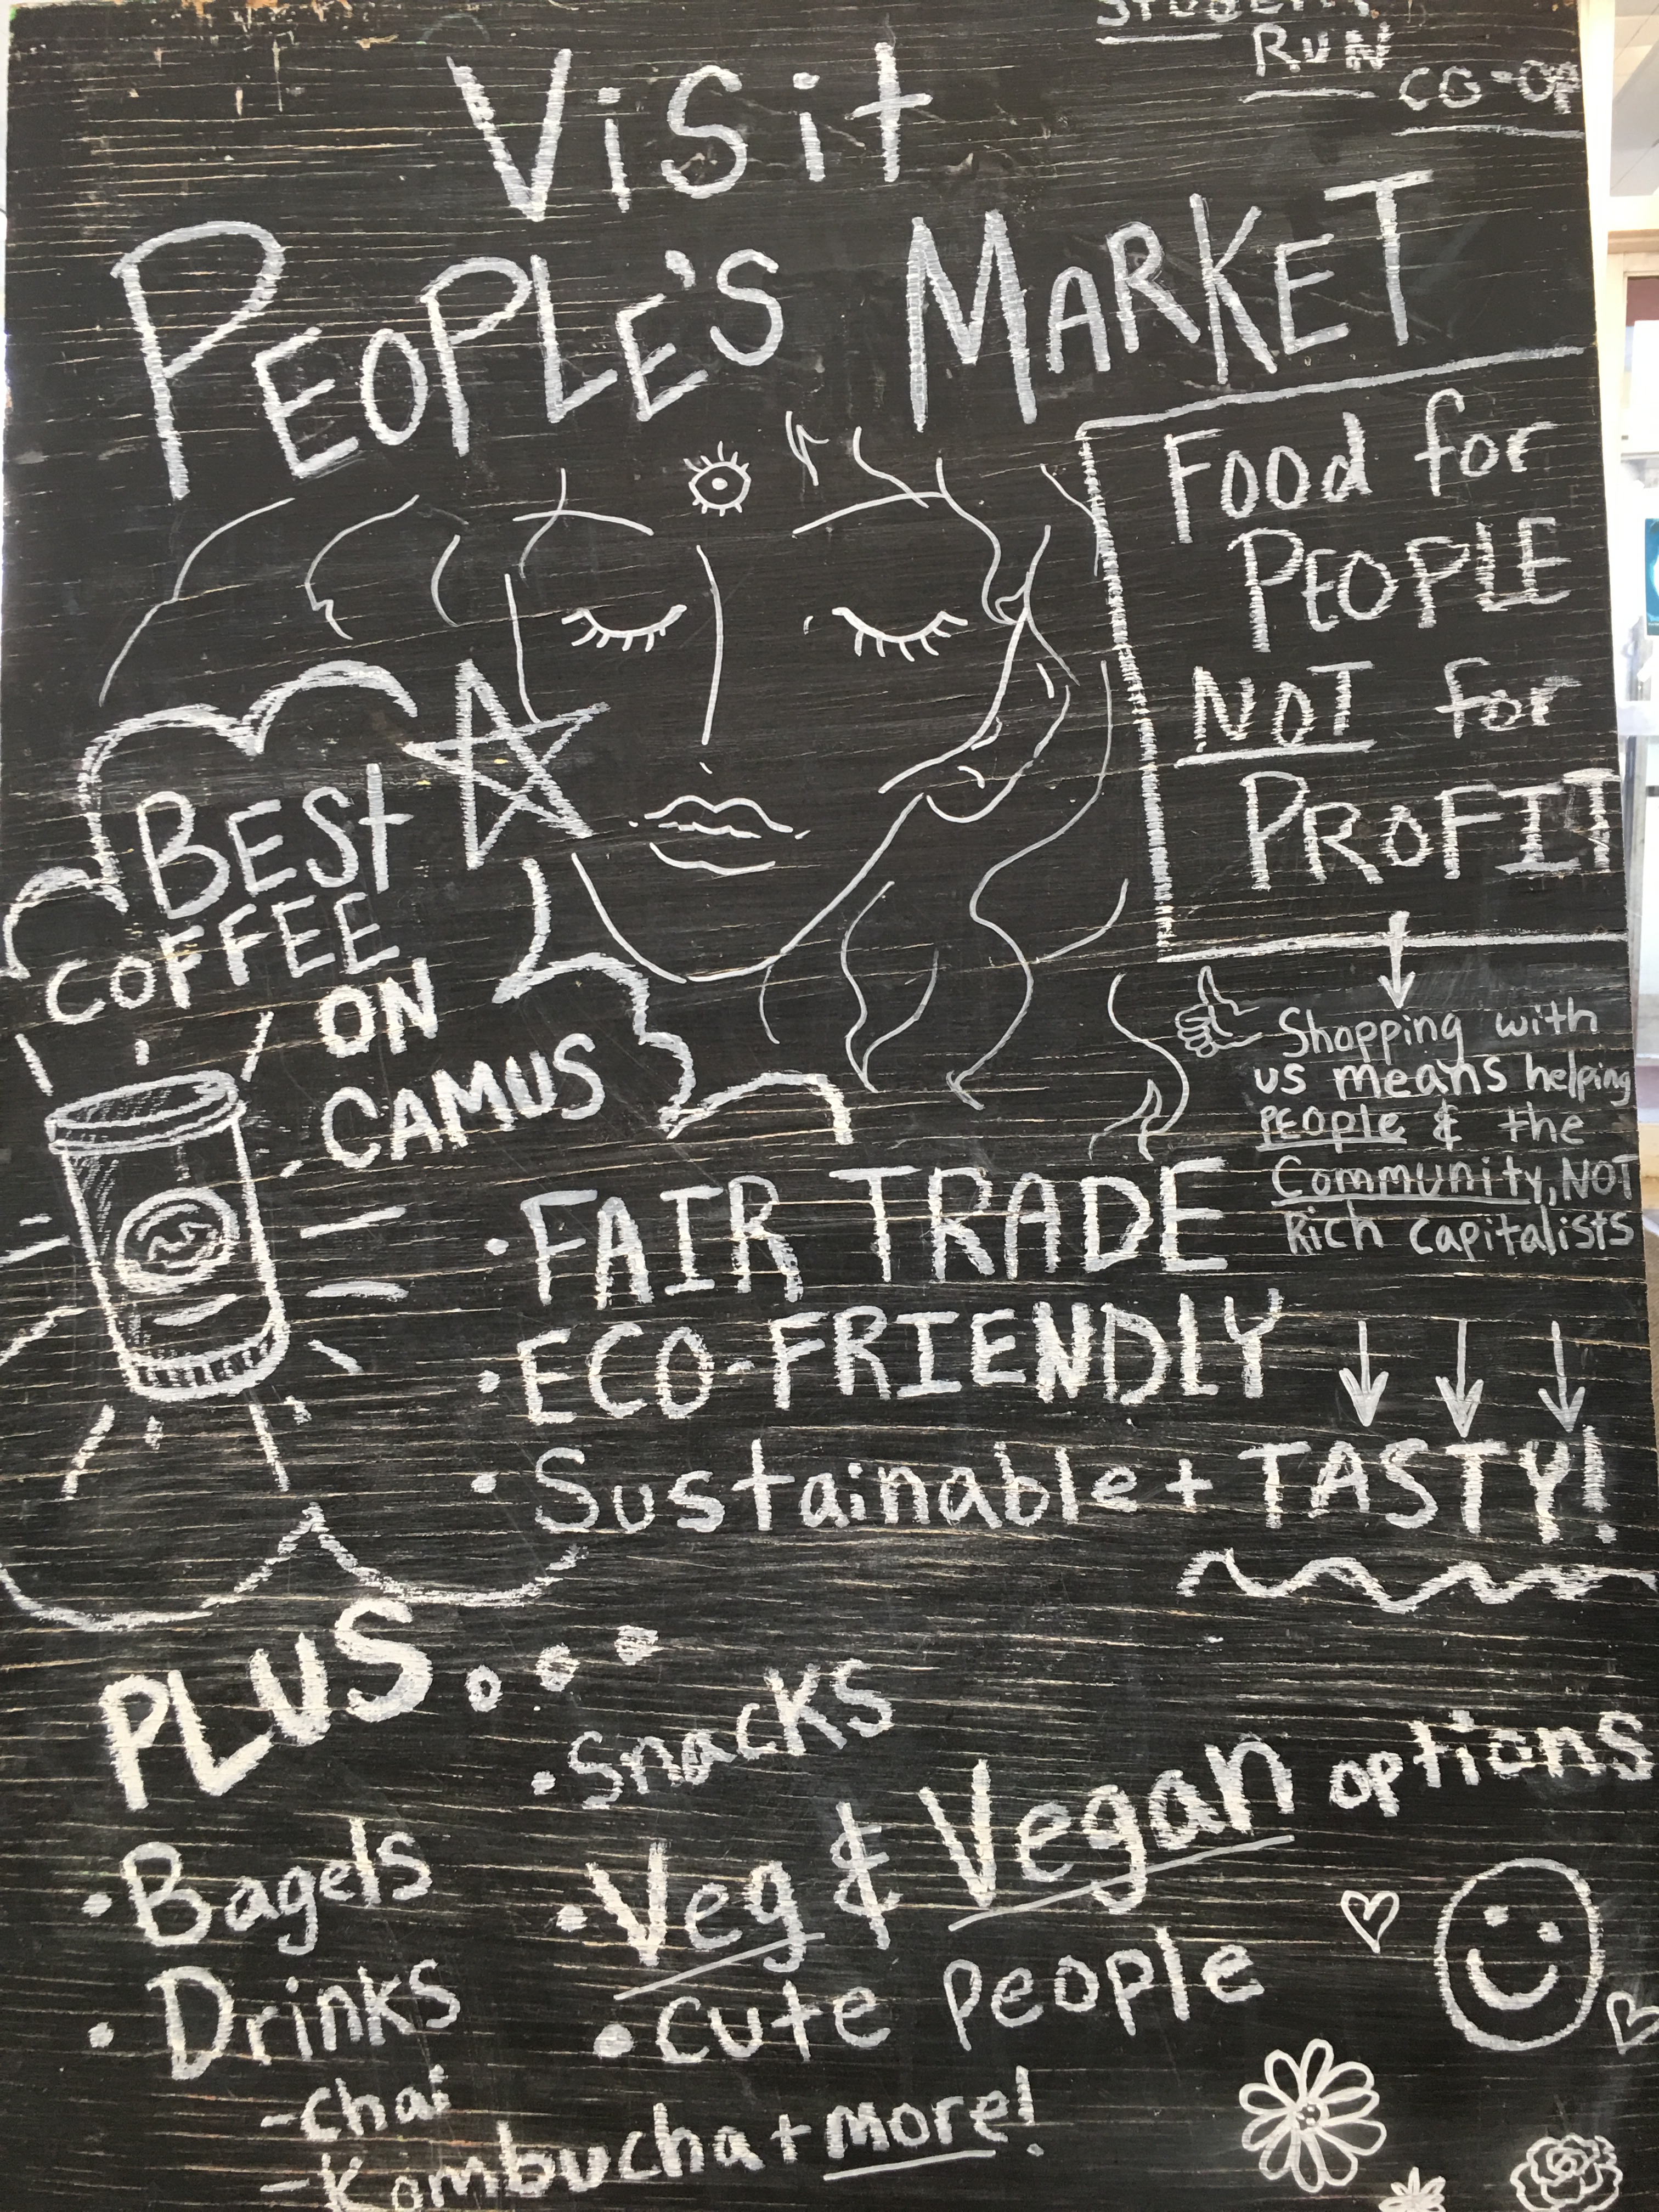 STUDENT
RUN
CO-OP
Visit
PEOPLE'S MARKET
Food for
PEOPLE
NOT for
PROFIT
BEST
COFFEE
ON
CAMUS
Shopping with
us means helping
PEOPLE & the
Community, NOT
Rich capitalists
• FAIR TRADE
• ECO-FRIENDLY
• Sustainable + TASTY!
PLUS...
• Bagels
• Drinks
- Chai
- Kombucha + more!
• Snacks
• Veg & Vegan options
• Cute People